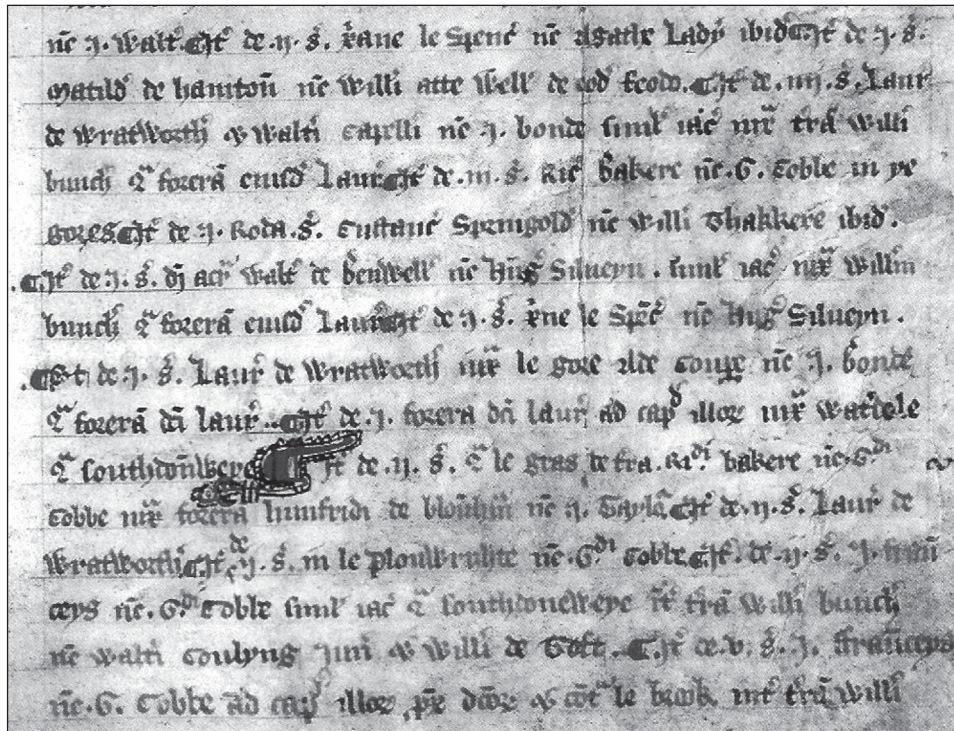 nc̄ .J. walt̄. ¶Jt̄ de .ij. s̄. xane le Spenc̄ nc̄ Agath Lady ibid ¶Jt̄ de .j. s̄.
Matild de hamton̄ nc̄ willi atte well de eod feodo. ¶Jt̄ de .iiij. s̄. Laur̄
de wratworth & walti capelli nc̄ .J. bonde simt iac̄ int̄ trā willi
bunch & forerā eiusd Laur̄ ¶Jt̄ de .iij. s̄. Ric̄ bakere nc̄ .G. Cobbe in þe
gores ¶Jt̄ de .j. Roda .s̄. Custanc̄ Springold nc̄ willi Thakkere ibid.
¶Jt̄ de .j. s̄. dj acr̄ walt̄ de benwell nc̄ huḡ Silueyn. simt iac̄ int̄ willm
bunch & forerā eiusd Laur̄ ¶Jt̄ de .j. s̄. xp̄ne le Spēc̄ nc̄ huḡ Silueyn.
¶Jt̄ de .j. s̄. Laur̄ de wratworth int̄ le gore nc̄ .J. bonde
& forerā dc̄i laur̄. ¶Jt̄ de .j. forera dc̄i laur̄ ad cap̄ illor̄ int̄
& southdon̄weye ¶Jt̄ de .ij. s̄. & le gras de bakere nc̄ .G.di
Cobbe int̄ forerā humfridi de nc̄ .J. Tayl ¶Jt̄ de .ij. s̄. Laur̄ de
wratworth. ¶Jt̄ de .j. s̄. in le Plouwruhte nc̄ .G.di Cobbe ¶Jt̄ de .ij. s̄. .J. fraun
ceys nc̄ .G.di Cobbe simt iac̄ & southdoneweye int̄ trā willi bunch
nc̄ walti Coulyng Juñ & willi de Toft. ¶Jt̄ de .v. s̄. .J. ffraunceys
nc̄ .G. Cobbe ad cap̄ illor̄ & le brook int̄ trā willi